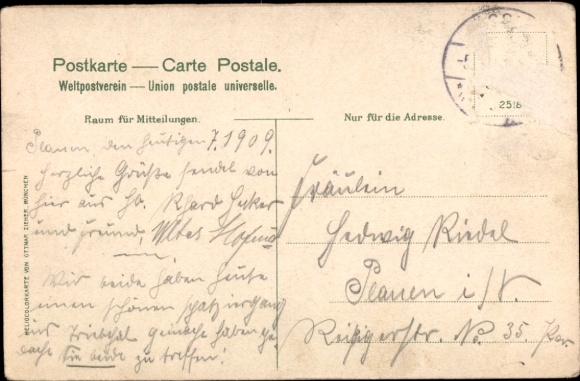 Postkarte — Carte Postale.
Weltpostverein — Union postale universelle.
Raum für Mitteilungen.
Nur für die Adresse.
2516
Plauen, den heutigen 7. 1909.
Herzliche Grüße sendet von
hier aus
und Freund,
Wir beide haben heute
einen schönen Spatziergang
ins Triebthal gemacht haben ge-
dacht Sie beide zu treffen!
Fräulein
Hedwig Riedel
Plauen i/V.
Reißigerstr. No. 35. Par.
HELIOCOLORKARTE VON OTTMAR ZIEHER, MÜNCHEN